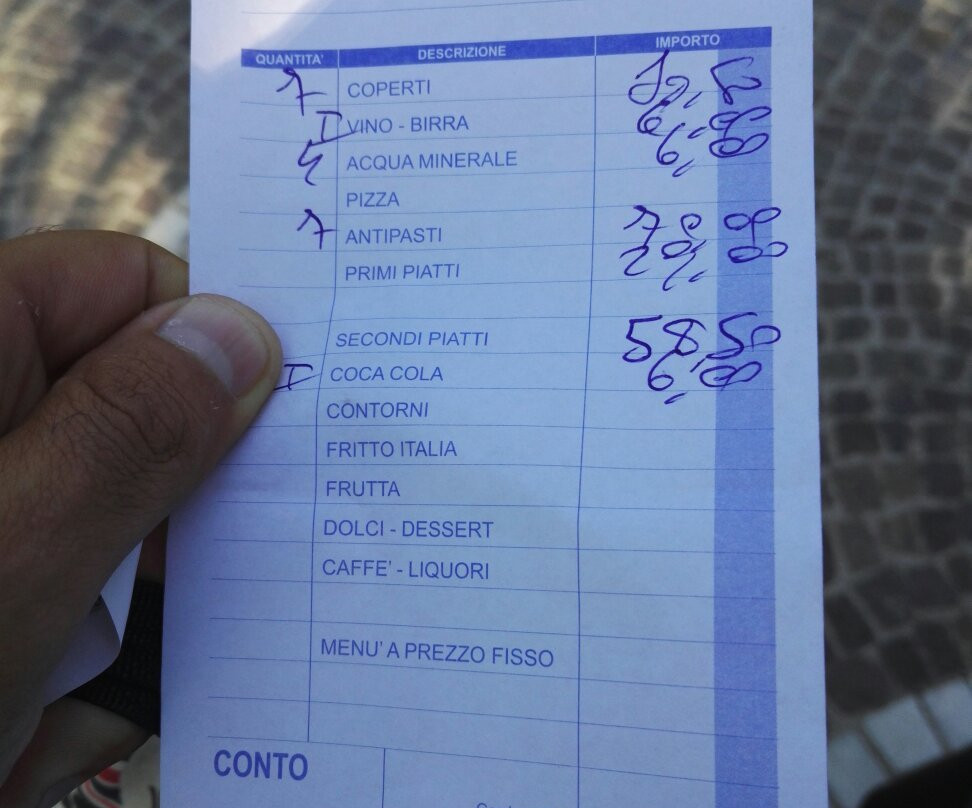 QUANTITA' DESCRIZIONE IMPORTO
7 COPERTI
I VINO - BIRRA 6,00
4 ACQUA MINERALE 6,00
PIZZA
7 ANTIPASTI 70,00
PRIMI PIATTI 29,00
SECONDI PIATTI 58,50
I COCA COLA 6,00
CONTORNI
FRITTO ITALIA
FRUTTA
DOLCI - DESSERT
CAFFE' - LIQUORI
MENU' A PREZZO FISSO
CONTO